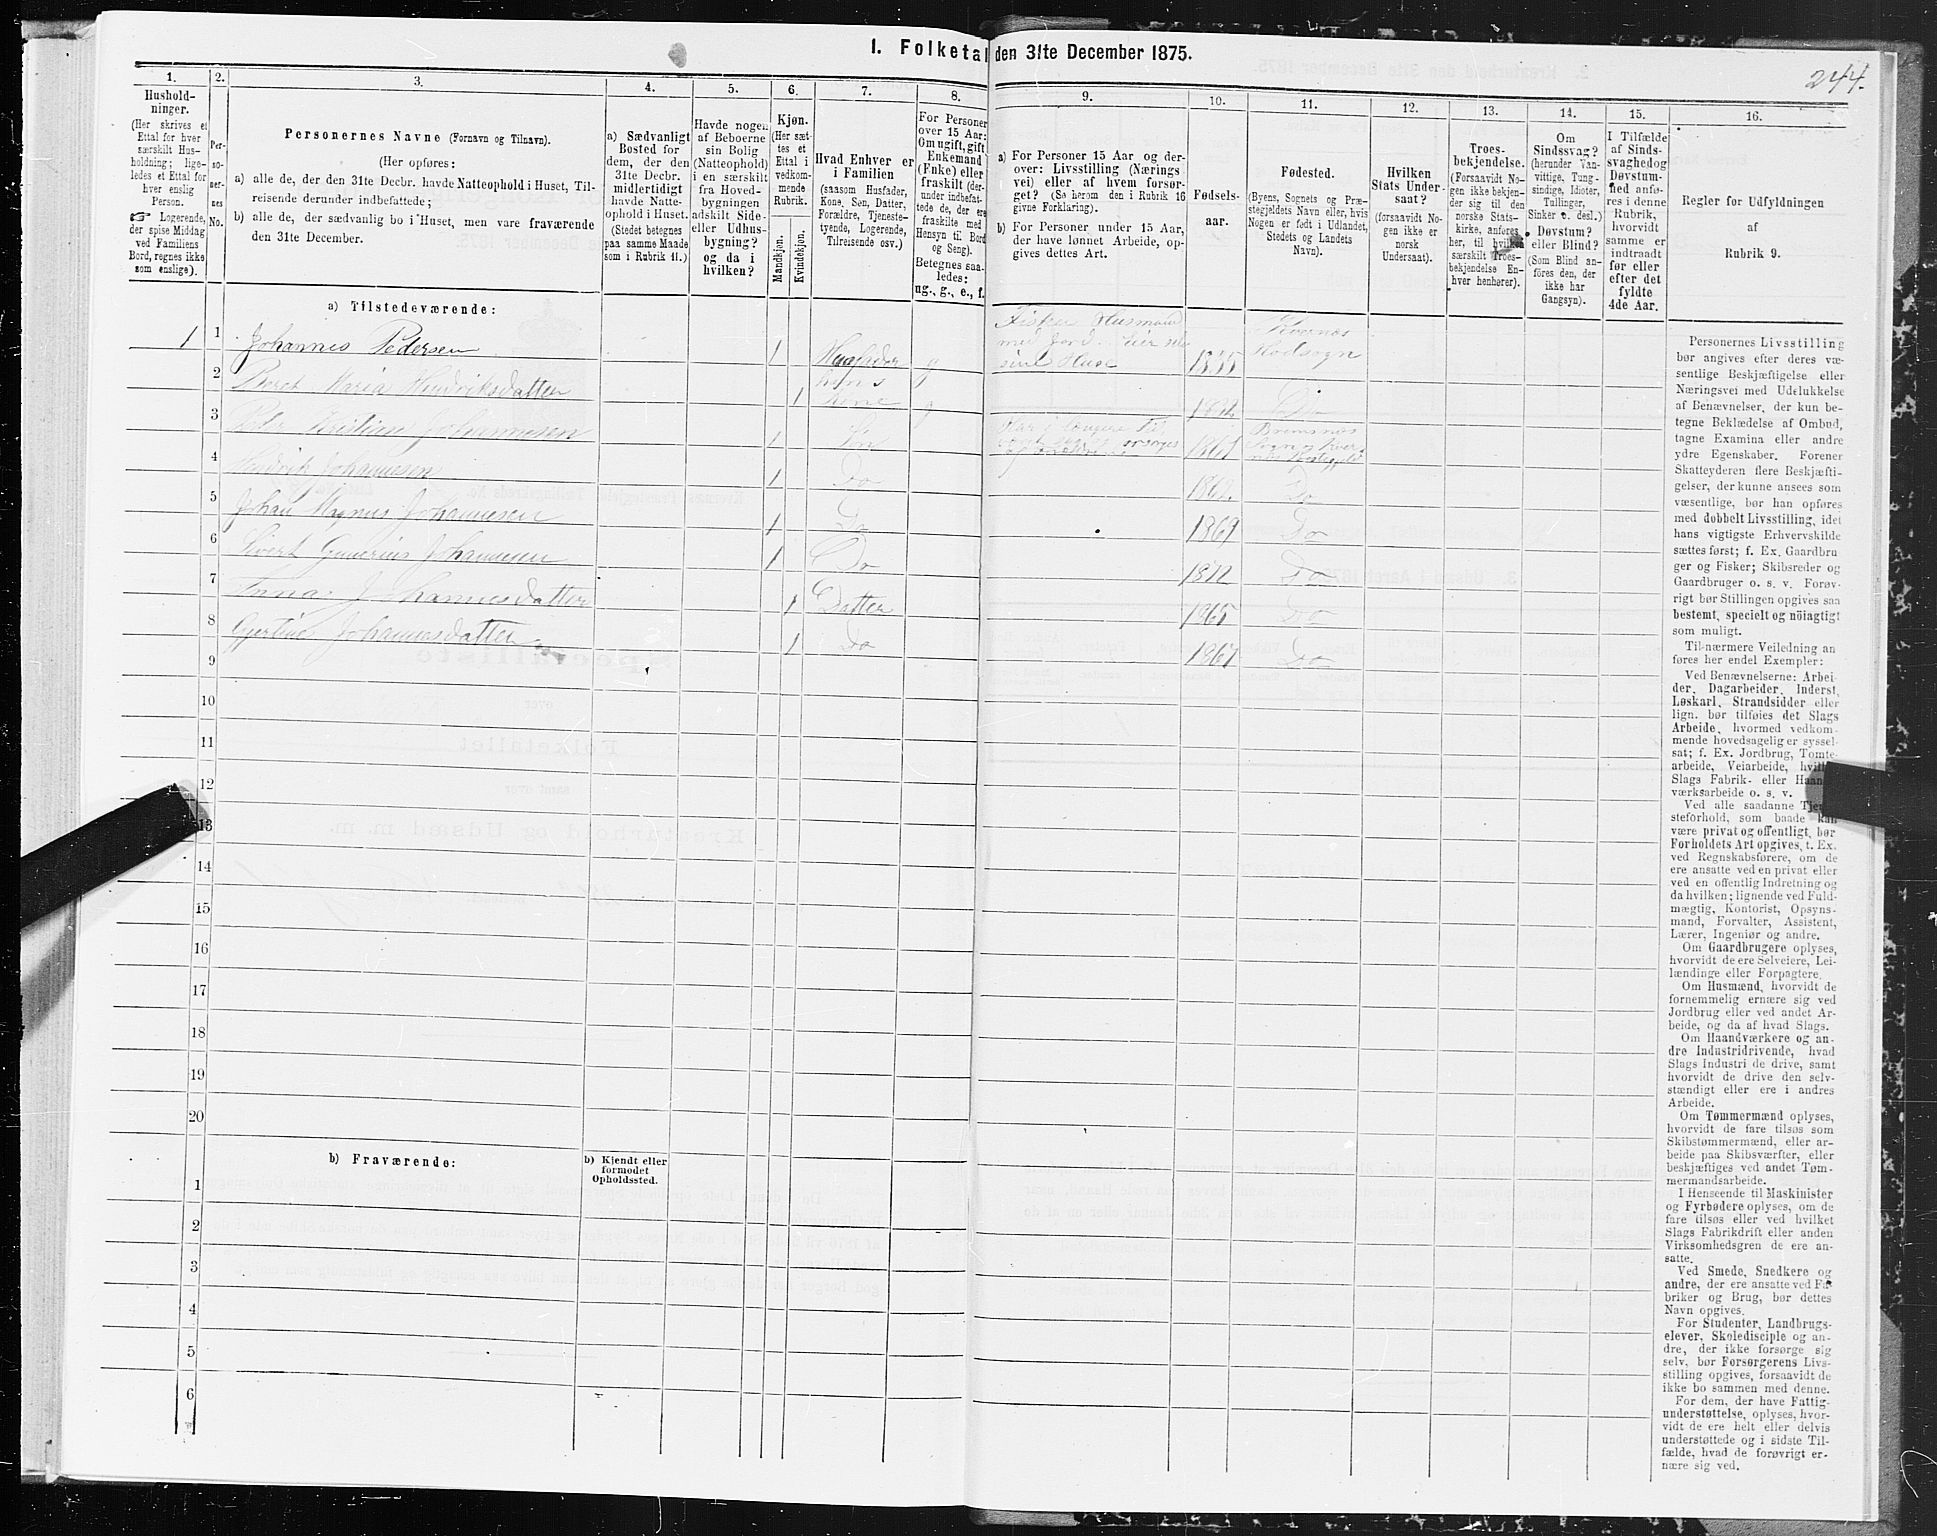 I. Folketal den 31te December 1875.
244.
1.
Hushold-
ninger.
(Her skrives et
Ettal for hver
særskilt Hus-
holdning; lige-
ledes et Ettal for
hver enslig
Person.
☞ Logerende,
der spise Middag
ved Familiens
Bord, regnes ikke
som enslige).
2.
Per-
so-
ner-
nes
No.
3.
Personernes Navne (Fornavn og Tilnavn).
(Her opføres:
a) alle de, der den 31te Decbr. havde Natteophold i Huset, Til-
reisende derunder indbefattede;
b) alle de, der sædvanlig bo i Huset, men vare fraværende
den 31te December.
4.
a) Sædvanligt
Bosted for
dem, der den
31te Decbr.
midlertidigt
havde Natte-
ophold i Huset.
(Stedet betegnes
paa samme Maade
som i Rubrik 11.)
5.
Havde nogen
af Beboerne
sin Bolig
(Natteophold)
i en særskilt
fra Hoved-
bygningen
adskilt Side-
eller Udhus-
bygning?
og da i
hvilken?
6.
Kjøn.
(Her sæt-
tes et
Ettal i
vedkom-
mende
Rubrik.
Mandkjøn.
Kvindekjøn.
7.
Hvad Enhver er
i Familien
(saasom Husfader,
Kone, Søn, Datter,
Forældre, Tjeneste-
tyende, Logerende,
Tilreisende osv.)
8.
For Personer
over 15 Aar:
Om ugift, gift
Enkemand
(Enke) eller
fraskilt (der-
under indbefat-
tede de, der ere
fraskilte med
Hensyn til Bord
og Seng).
Betegnes saa-
ledes:
ug., g., e., f.
9.
a) For Personer 15 Aar og der-
over: Livsstilling (Nærings-
vei) eller af hvem forsør-
get? (Se herom den i Rubrik 16
givne Forklaring).
b) For Personer under 15 Aar,
der have lønnet Arbeide, op-
gives dettes Art.
10.
Fødsels-
aar.
11.
Fødested.
(Byens, Sognets og Præ-
stegjeldets Navn eller, hvis
Nogen er født i Udlandet,
Stedets og Landets
Navn).
12.
Hvilken
Stats Under-
saat?
(forsaavidt No-
gen ikke er
norsk
Undersaat).
13.
Troes-
bekjendelse.
(Forsaavidt No-
gen ikke bekjen-
der sig til den
norske Stats-
kirke, anføres
her, til hvilken
særskilt Troes-
bekjendelse En-
hver henhører).
14.
Om
Sindssvag?
(herunder Van-
vittige, Tung-
sindige, Idioter,
Tullinger,
Sinker o. desl.)
Døvstum?
eller Blind?
(Som Blind an-
føres den, der
ikke har
Gangsyn).
15.
I Tilfælde
af Sinds-
svaghed og
Døvstum-
hed anfø-
res i denne
Rubrik,
hvorvidt
samme er
indtraadt
før eller
efter det
fyldte
4de Aar.
16.
Regler for Udfyldningen
af
Rubrik 9.
a) Tilstedeværende:
1 1 Johannes Pedersen 1 Husfader g Fisker Husmand med Jord sine Huse Kvernes Hodsogn
2 Beret Maria Hendriksdatter 1 hans kone g Do
3 Peder Kristian Johannesen 1 Søn 1861 Bremsnes
4 Hendrik Johannesen 1 Do 1862. Do
5 Johan Magnus Johannesen 1 Do 1869 Do
6 Sivert Gunerius Johannesen 1 Do 1872 Do
7 Anna Johannesdatter 1 Datter 1865 Do
8 Gjertine Johannesdatter 1 Do 1867 Do
9
10
11
12
13
14
15
16
17
18
19
20
b) Fraværende:
b) Kjendt eller
formodet
Opholdssted.
1
2
3
4
5
6
Personernes Livsstilling
bør angives efter deres væ-
sentlige Beskjæftigelse eller
Næringsvei med Udelukkelse
af Benævnelser, der kun be-
tegne Beklædelse af Ombud,
tagne Examina eller andre
ydre Egenskaber. Forener
Skatteyderen flere Beskjæfti-
gelser, der kunne ansees som
væsentlige, bør han opføres
med dobbelt Livsstilling, idet
hans vigtigste Erhvervskilde
sættes først; f. Ex. Gaardbru-
ger og Fisker; Skibsreder og
Gaardbruger o. s. v. Forøv-
rigt bør Stillingen opgives saa
bestemt, specielt og nöiagtigt
som muligt.
Til nærmere Veiledning an-
føres her endel Exempler:
Ved Benævnelserne: Arbei-
der, Dagarbeider, Inderst,
Løskarl, Strandsidder eller
lign. bør tilføies det Slags
Arbeide, hvormed vedkom-
mende hovedsagelig er syssel-
sat; f. Ex. Jordbrug, Tomte-
arbeide, Veiarbeide, hvilket
Slags Fabrik- eller Haand-
værksarbeide o. s. v.
Ved alle saadanne Tjene-
steforhold, som baade kan
være privat og offentligt, bør
Forholdets Art opgives, t. Ex.
ved Regnskabsførere, om de
ere ansatte ved en privat eller
ved en offentlig Indretning og
da hvilken; lignende ved Fuld-
mægtig, Kontorist, Opsyns-
mand, Forvalter, Assistent,
Lærer, Ingeniør og andre.
Om Gaardbrugere oplyses,
hvorvidt de ere Selveiere, Lei-
lændinge eller Forpagtere.
Om Husmænd, hvorvidt de
fornemmelig ernære sig ved
Jordbrug eller ved andet Ar-
beide, og da af hvad Slags.
Om Haandværkere og an-
dre Industridrivende, hvad
Slags Industri de drive, samt
hvorvidt de drive den selv-
stændigt eller ere i andres
Arbeide.
Om Tømmermænd oplyses,
hvorvidt de fare tilsøs som
Skibstømmermænd, eller ar-
beide paa Skibsværfter, eller
beskjæftiges ved andet Tøm-
mermandsarbeide.
I Henseende til Maskinister
og Fyrbødere oplyses, om de
fare tilsøs eller ved hvilket
Slags Fabrikdrift eller anden
Virksomhedsgren de ere an-
satte.
Ved Smede, Snedkere og
andre, der ere ansatte ved Fa-
briker og Brug, bør dettes
Navn opgives.
For Studenter, Landbrugs-
elever, Skoledisciple og an-
dre, der ikke forsørge sig
selv, bør Forsørgerens Livs-
stilling opgives, forsaavidt de
ikke bo sammen med denne.
For dem, der have Fattig-
understøttelse, oplyses, hvor-
vidt de ere helt eller delvis
understøttede og i sidste Til-
fælde, hvad de forøvrigt er-
nære sig ved.